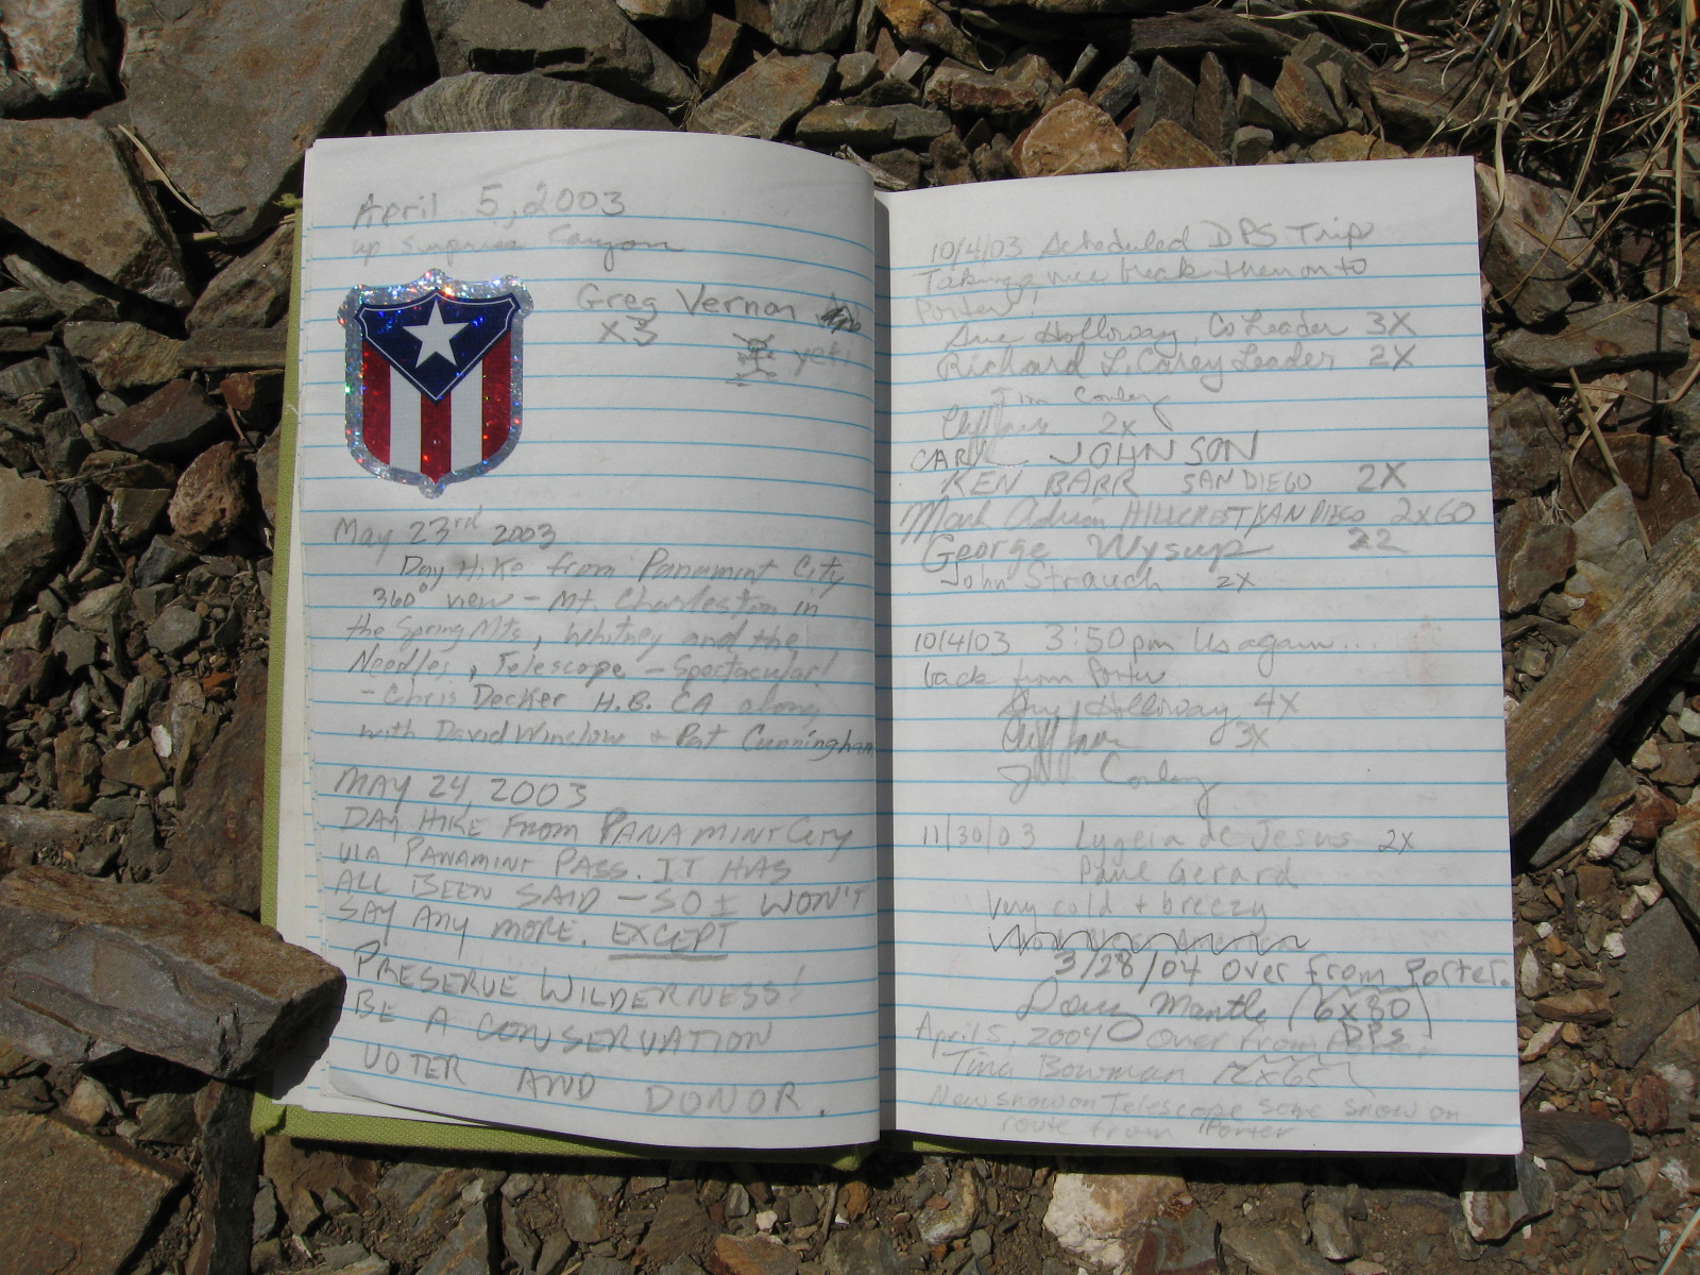 April 5, 2003
up Surprise Canyon
Greg Vernon
X3
yeti
May 23rd 2003
Day Hike from Panamint City
360° view - Mt. Charleston in
the Spring Mts, Whitney and the
Needles, Telescope - Spectacular!
- Chris Decker H.B. CA along
with David Winslow + Pat Cunningham
MAY 24, 2003
DAY HIKE FROM PANAMINT CITY
VIA PANAMINT PASS. IT HAS
ALL BEEN SAID - SO I WON'T
SAY ANY MORE. EXCEPT
PRESERVE WILDERNESS!
BE A CONSERVATION
VOTER AND DONOR.
10/4/03 Scheduled DPS Trip
Taking a nice break then on to
Porter!
Sue Holloway, Co Leader 3X
Richard L. Carey Leader 2X
Jim Conley
Cliff 2x
CARL JOHNSON
KEN BARR SAN DIEGO 2X
Mark Adrian HILLCREST/SAN DIEGO 2x60
George Wysup 22
John Strauch 2x
10/4/03 3:50pm Us again...
back from Porter
Sue Holloway 4X
Cliff 3x
Conley
11/30/03 Lygeia de Jesus 2x
Paul Gerard
Very cold + breezy
3/28/04 Over from Porter.
Doug Mantle (6x30)
DPS
April 5, 2004 Over from Porter
Tina Bowman
New snow on Telescope some snow on
route from Porter